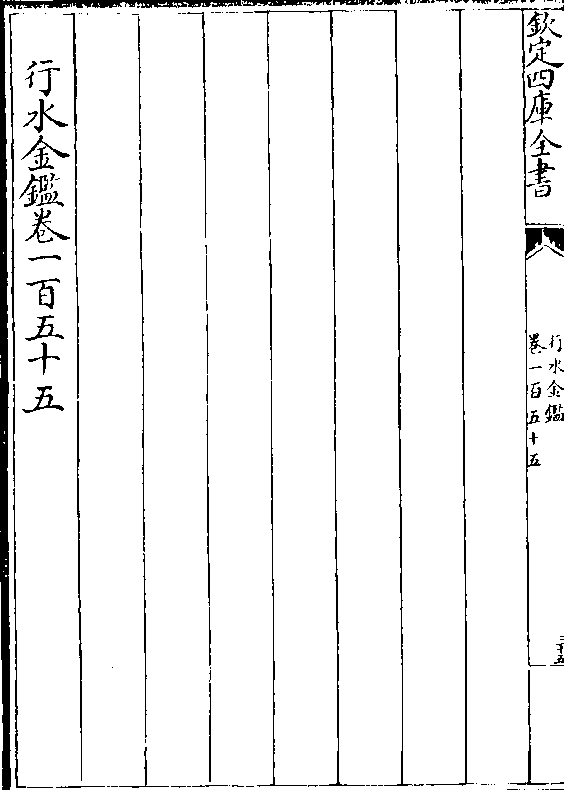 欽定四庫全書
行水金鑑
卷一百五十五
行水金鑑卷一百五十五